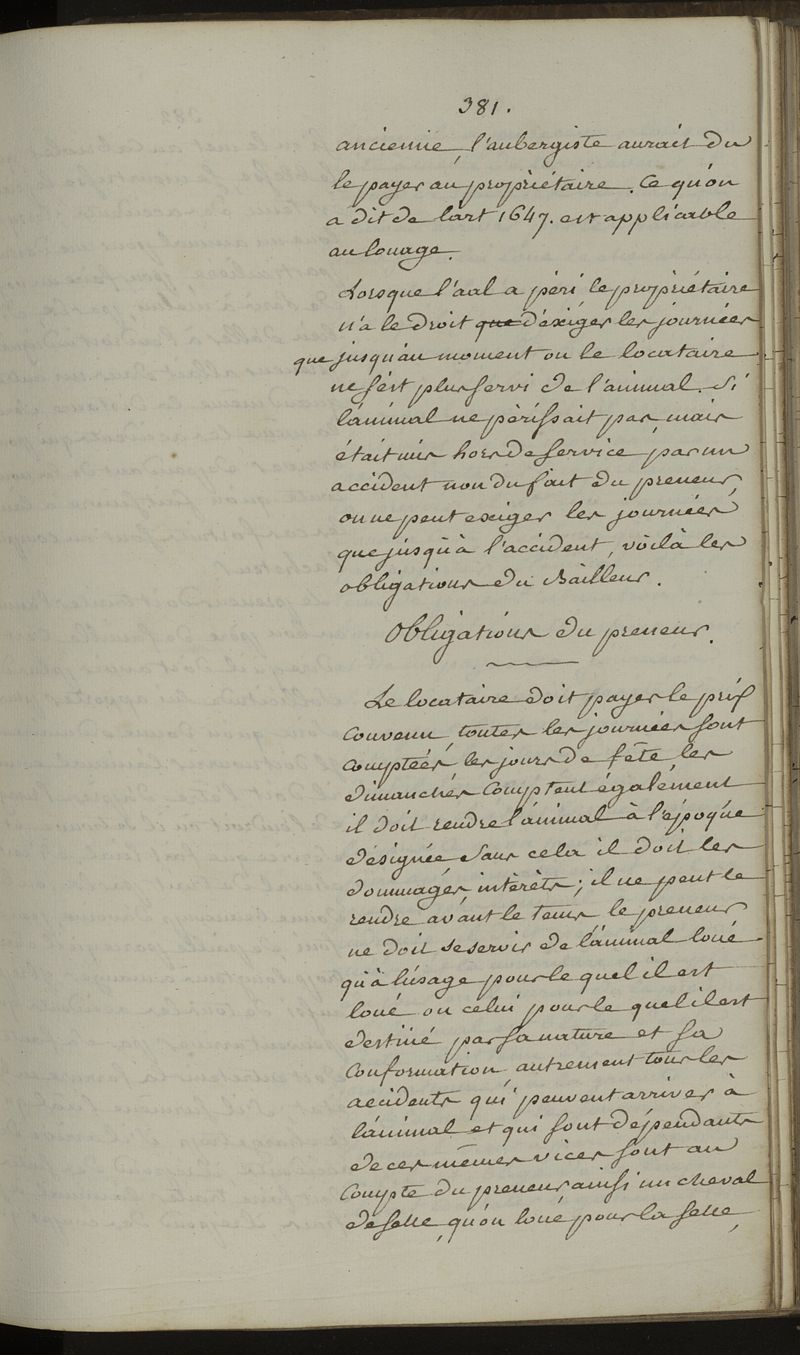 381.
ancienne, l'aubergiste aurait du
le payer au propriétaire. Ce qu'on
a dit de l'art 1647. est applicable
au louage.
Lorsque l'aal a péri le propriétaire
n'a le droit que d'éxiger les journées
que jusqu'au moment ou le locataire
ne s'ést plus servi de l'animal. Si
l'animal ne périssait pas, mais
était mis hors de service par un
accident non du fait du preneur,
on ne peut exiger les journées
que jusqu'à l'accident, voilà les
obligations du Bailleur.
Obligations du preneur.
Le locataire doit payer le prix
convenu, toutes les journées sont
comptées, les jours de fête, les
dimanches comptent également
il doit rendre l'animal à l'époque
désignée sans cela il doit les
dommages, intérèts; il ne peut le
rendre avant le tems, le preneur
ne doit se servir de l'animal loué
qu'à l'usage pour le quel il est
loué ou celui pour le quel il est
destiné par sa nature et sa
conformation, autrement tous les
accidents qui peuvent arriver à
l'animal et qui sont dépendants
de ces mêmes vices sont au
compte du preneur ainsi un cheval
de selle, qu'on loue pour la selle,